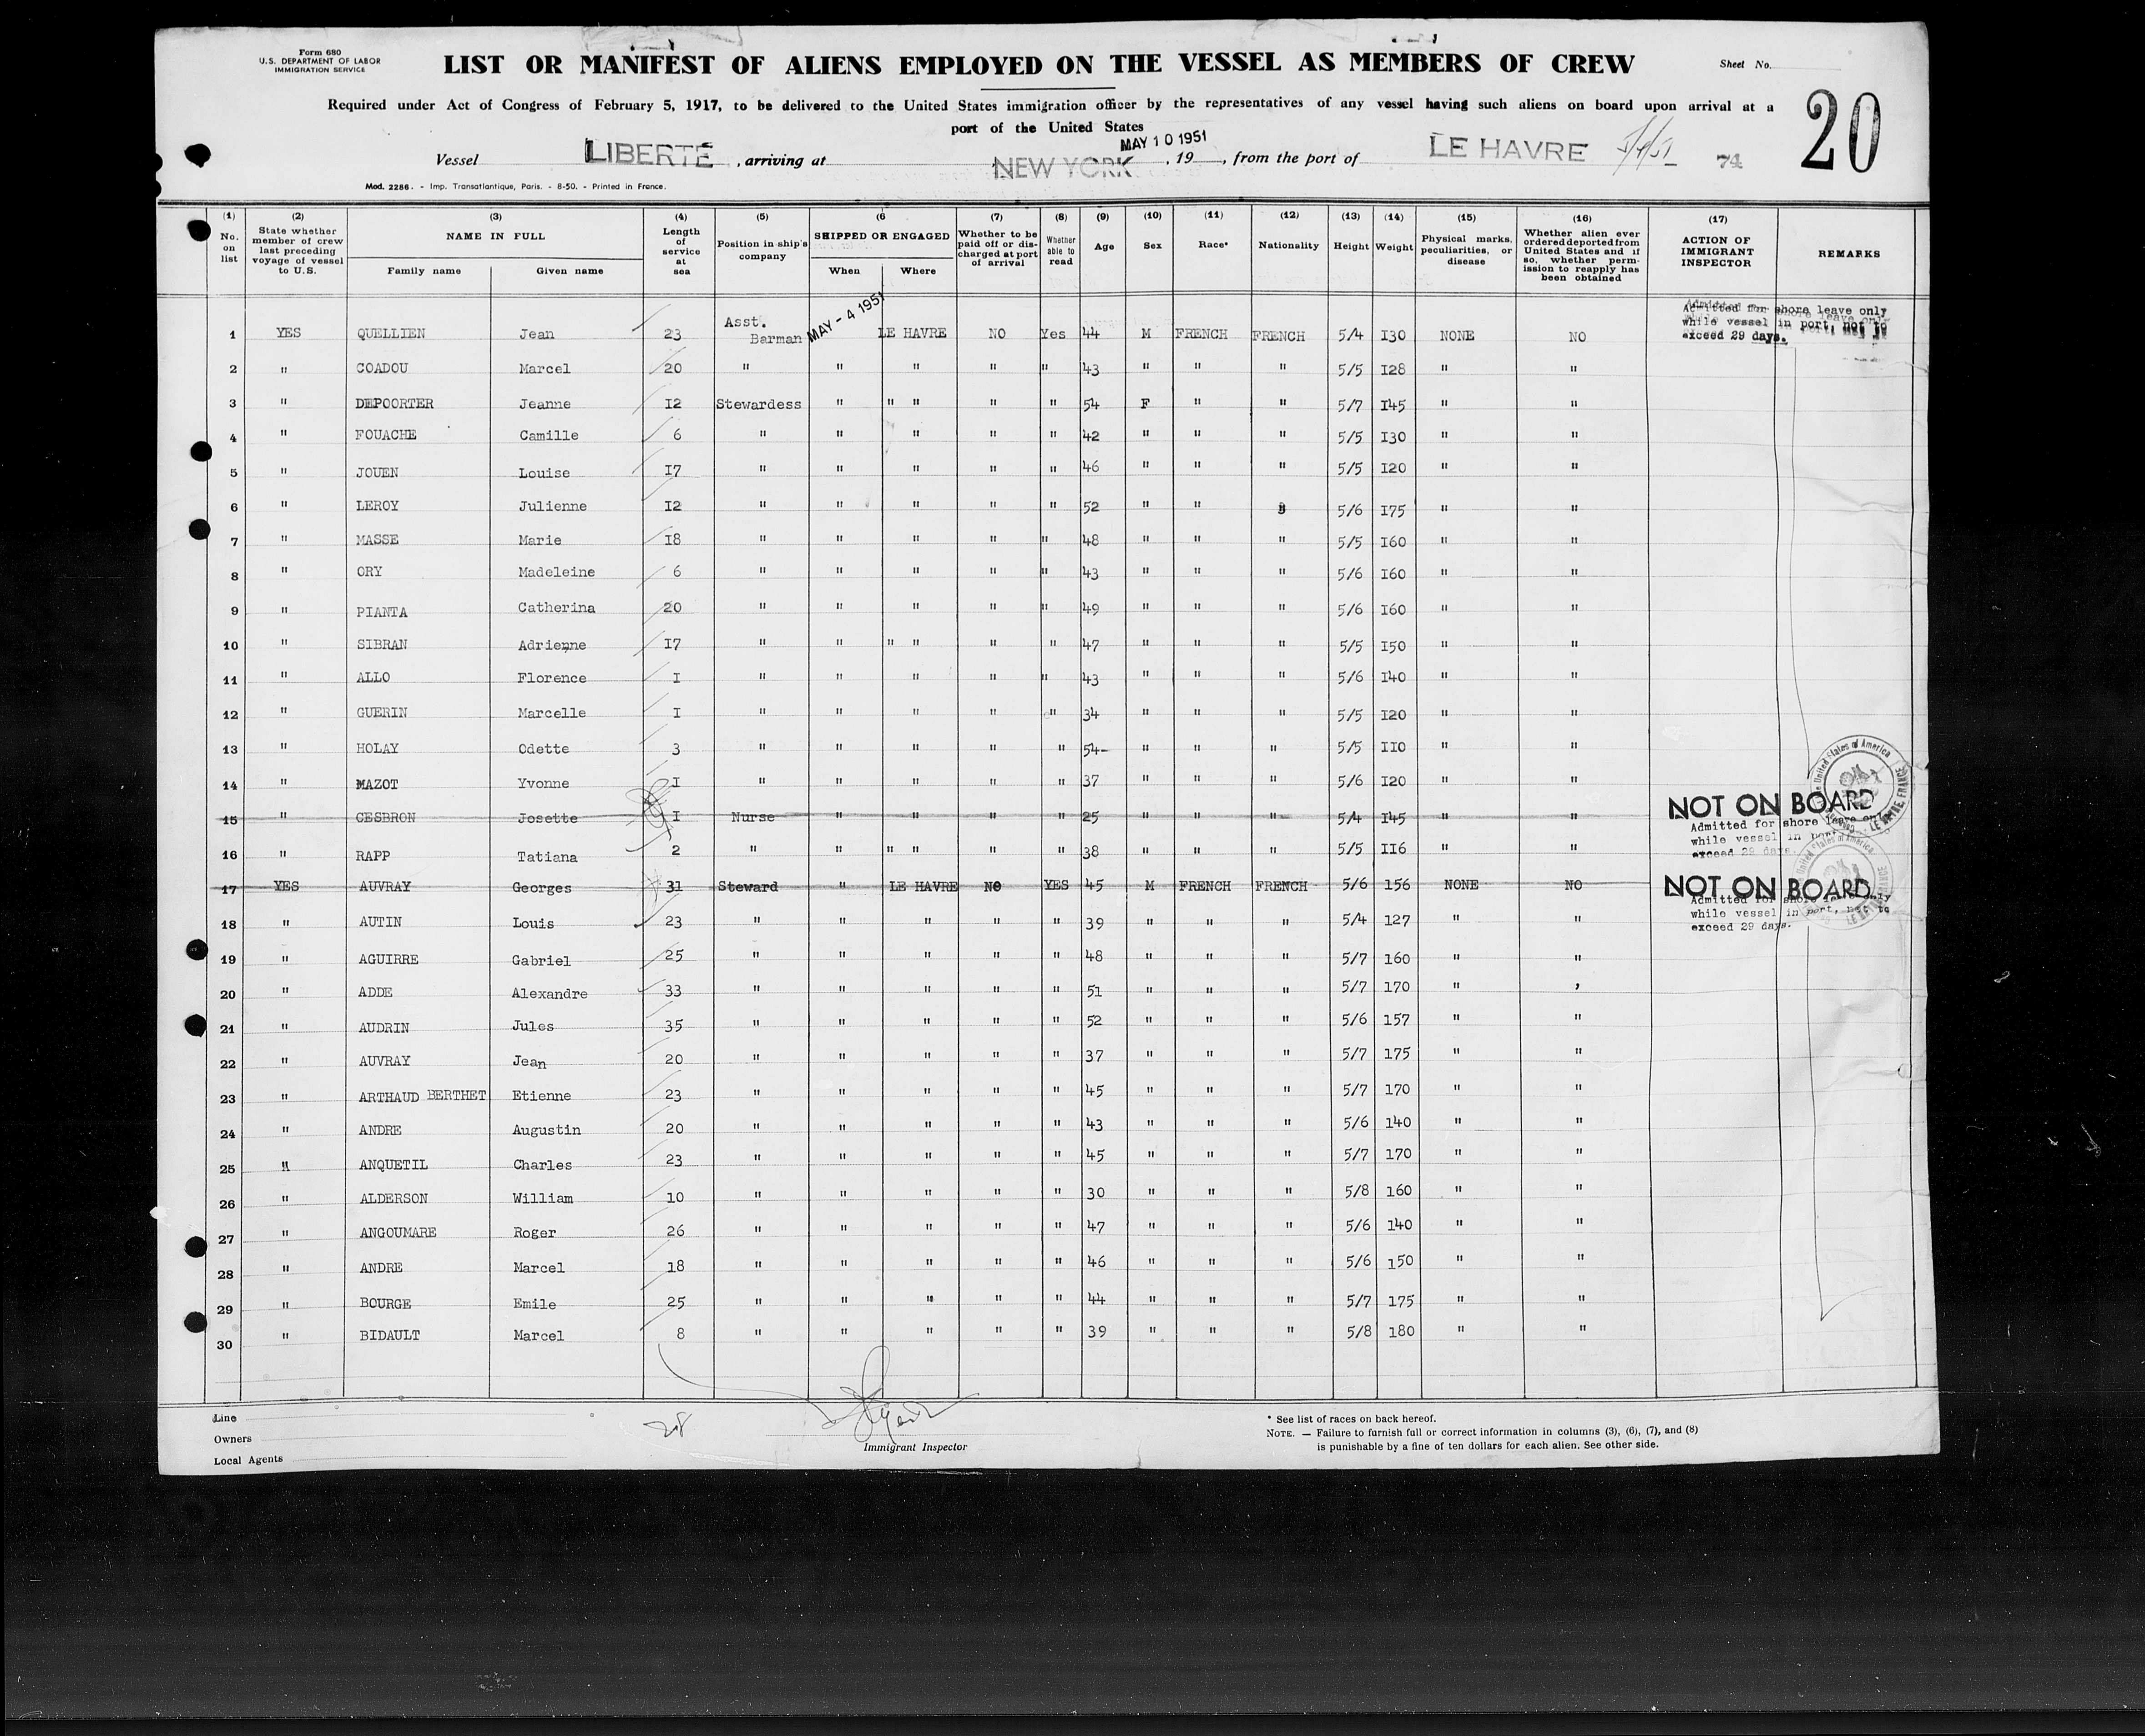 Form 680
U.S. DEPARTMENT OF LABOR
IMMIGRATION SERVICE
LIST OR MANIFEST OF ALIENS EMPLOYED ON THE VESSEL AS MEMBERS OF CREW
Sheet No.
20
Required under Act of Congress of February 5, 1917, to be delivered to the United States immigration officer by the representatives of any vessel having such aliens on board upon arrival at a
port of the United States
MAY 10 1951
Vessel LIBERTE, arriving at NEW YORK, 19, from the port of LE HAVRE 5/4/51 74
Mod. 2286. - Imp. Transatlantique, Paris. - 8-50. - Printed in France.
(1) (2) (3) (4) (5) (6 (7) (8) (9) (10) (11) (12) (13) (14) (15) (16) (17)
No. on list
State whether member of crew last preceding voyage of vessel to U.S.
NAME IN FULL
Family name Given name
Length of service at sea
Position in ship's company
SHIPPED OR ENGAGED
When Where
Whether to be paid off or discharged at port of arrival
Whether able to read
Age Sex Race* Nationality Height Weight
Physical marks, peculiarities, or disease
Whether alien ever ordered deported from United States and if so, whether permission to reapply has been obtained
ACTION OF IMMIGRANT INSPECTOR
REMARKS
1 YES QUELLIEN Jean 23 Asst. Barman MAY - 4 1951 LE HAVRE NO Yes 44 M FRENCH FRENCH 5/4 I30 NONE NO
Admitted for shore leave only
while vessel in port, not to
exceed 29 days.
2 " COADOU Marcel 20 " " " " " 43 " " " 5/5 I28 " "
3 " DEPOORTER Jeanne I2 Stewardess " " " " " 54 F " " 5/7 I45 " "
4 " FOUACHE Camille 6 " " " " " 42 " " " 5/5 I30 " "
5 " JOUEN Louise I7 " " " " " 46 " " " 5/5 I20 " "
6 " LEROY Julienne I2 " " " " " 52 " " " 5/6 I75 " "
7 " MASSE Marie I8 " " " " " 48 " " " 5/5 I60 " "
8 " ORY Madeleine 6 " " " " " 43 " " " 5/6 I60 " "
9 " PIANTA Catherina 20 " " " " " 49 " " " 5/6 I60 " "
10 " SIBRAN Adrienne I7 " " " " " " 47 " " " 5/5 I50 " "
11 " ALLO Florence I " " " " " 43 " " " 5/6 I40 " "
12 " GUERIN Marcelle I " " " " " 34 " " " 5/5 I20 " "
13 " HOLAY Odette 3 " " " " " 54- " " " 5/5 II0 " "
14 " MAZOT Yvonne I " " " " " 37 " " " 5/6 I20 " "
15 " CESBRON Josette I Nurse " " " " 25 " " " 5/4 I45 " " NOT ON BOARD
Admitted for shore leave only
while vessel in port
exceed 29 days.
16 " RAPP Tatiana 2 " " " " " " 38 " " " 5/5 II6 " "
17 YES AUVRAY Georges 31 Steward " LE HAVRE NO YES 45 M FRENCH FRENCH 5/6 156 NONE NO NOT ON BOARD
Admitted for shore leave only
while vessel in port, not to
exceed 29 days.
18 " AUTIN Louis 23 " " " " " 39 " " " 5/4 127 " "
19 " AGUIRRE Gabriel 25 " " " " " 48 " " " 5/7 160 " "
20 " ADDE Alexandre 33 " " " " " 51 " " " 5/7 170 " '
21 " AUDRIN Jules 35 " " " " " 52 " " " 5/6 157 " "
22 " AUVRAY Jean 20 " " " " " 37 " " " 5/7 175 " "
23 " ARTHAUD BERTHET Etienne 23 " " " " " 45 " " " 5/7 170 " "
24 " ANDRE Augustin 20 " " " " " 43 " " " 5/6 140 " "
25 " ANQUETIL Charles 23 " " " " " 45 " " " 5/7 170 " "
26 " ALDERSON William 10 " " " " " 30 " " " 5/8 160 " "
27 " ANGOUMARE Roger 26 " " " " " 47 " " " 5/6 140 " "
28 " ANDRE Marcel 18 " " " " " 46 " " " 5/6 150 " "
29 " BOURGE Emile 25 " " " " " 44 " " " 5/7 175 " "
30 " BIDAULT Marcel 8 " " " " " 39 " " " 5/8 180 " "
Line
Owners
Local Agents
28
Immigrant Inspector
* See list of races on back hereof.
NOTE. — Failure to furnish full or correct information in columns (3), (6), (7), and (8)
is punishable by a fine of ten dollars for each alien. See other side.